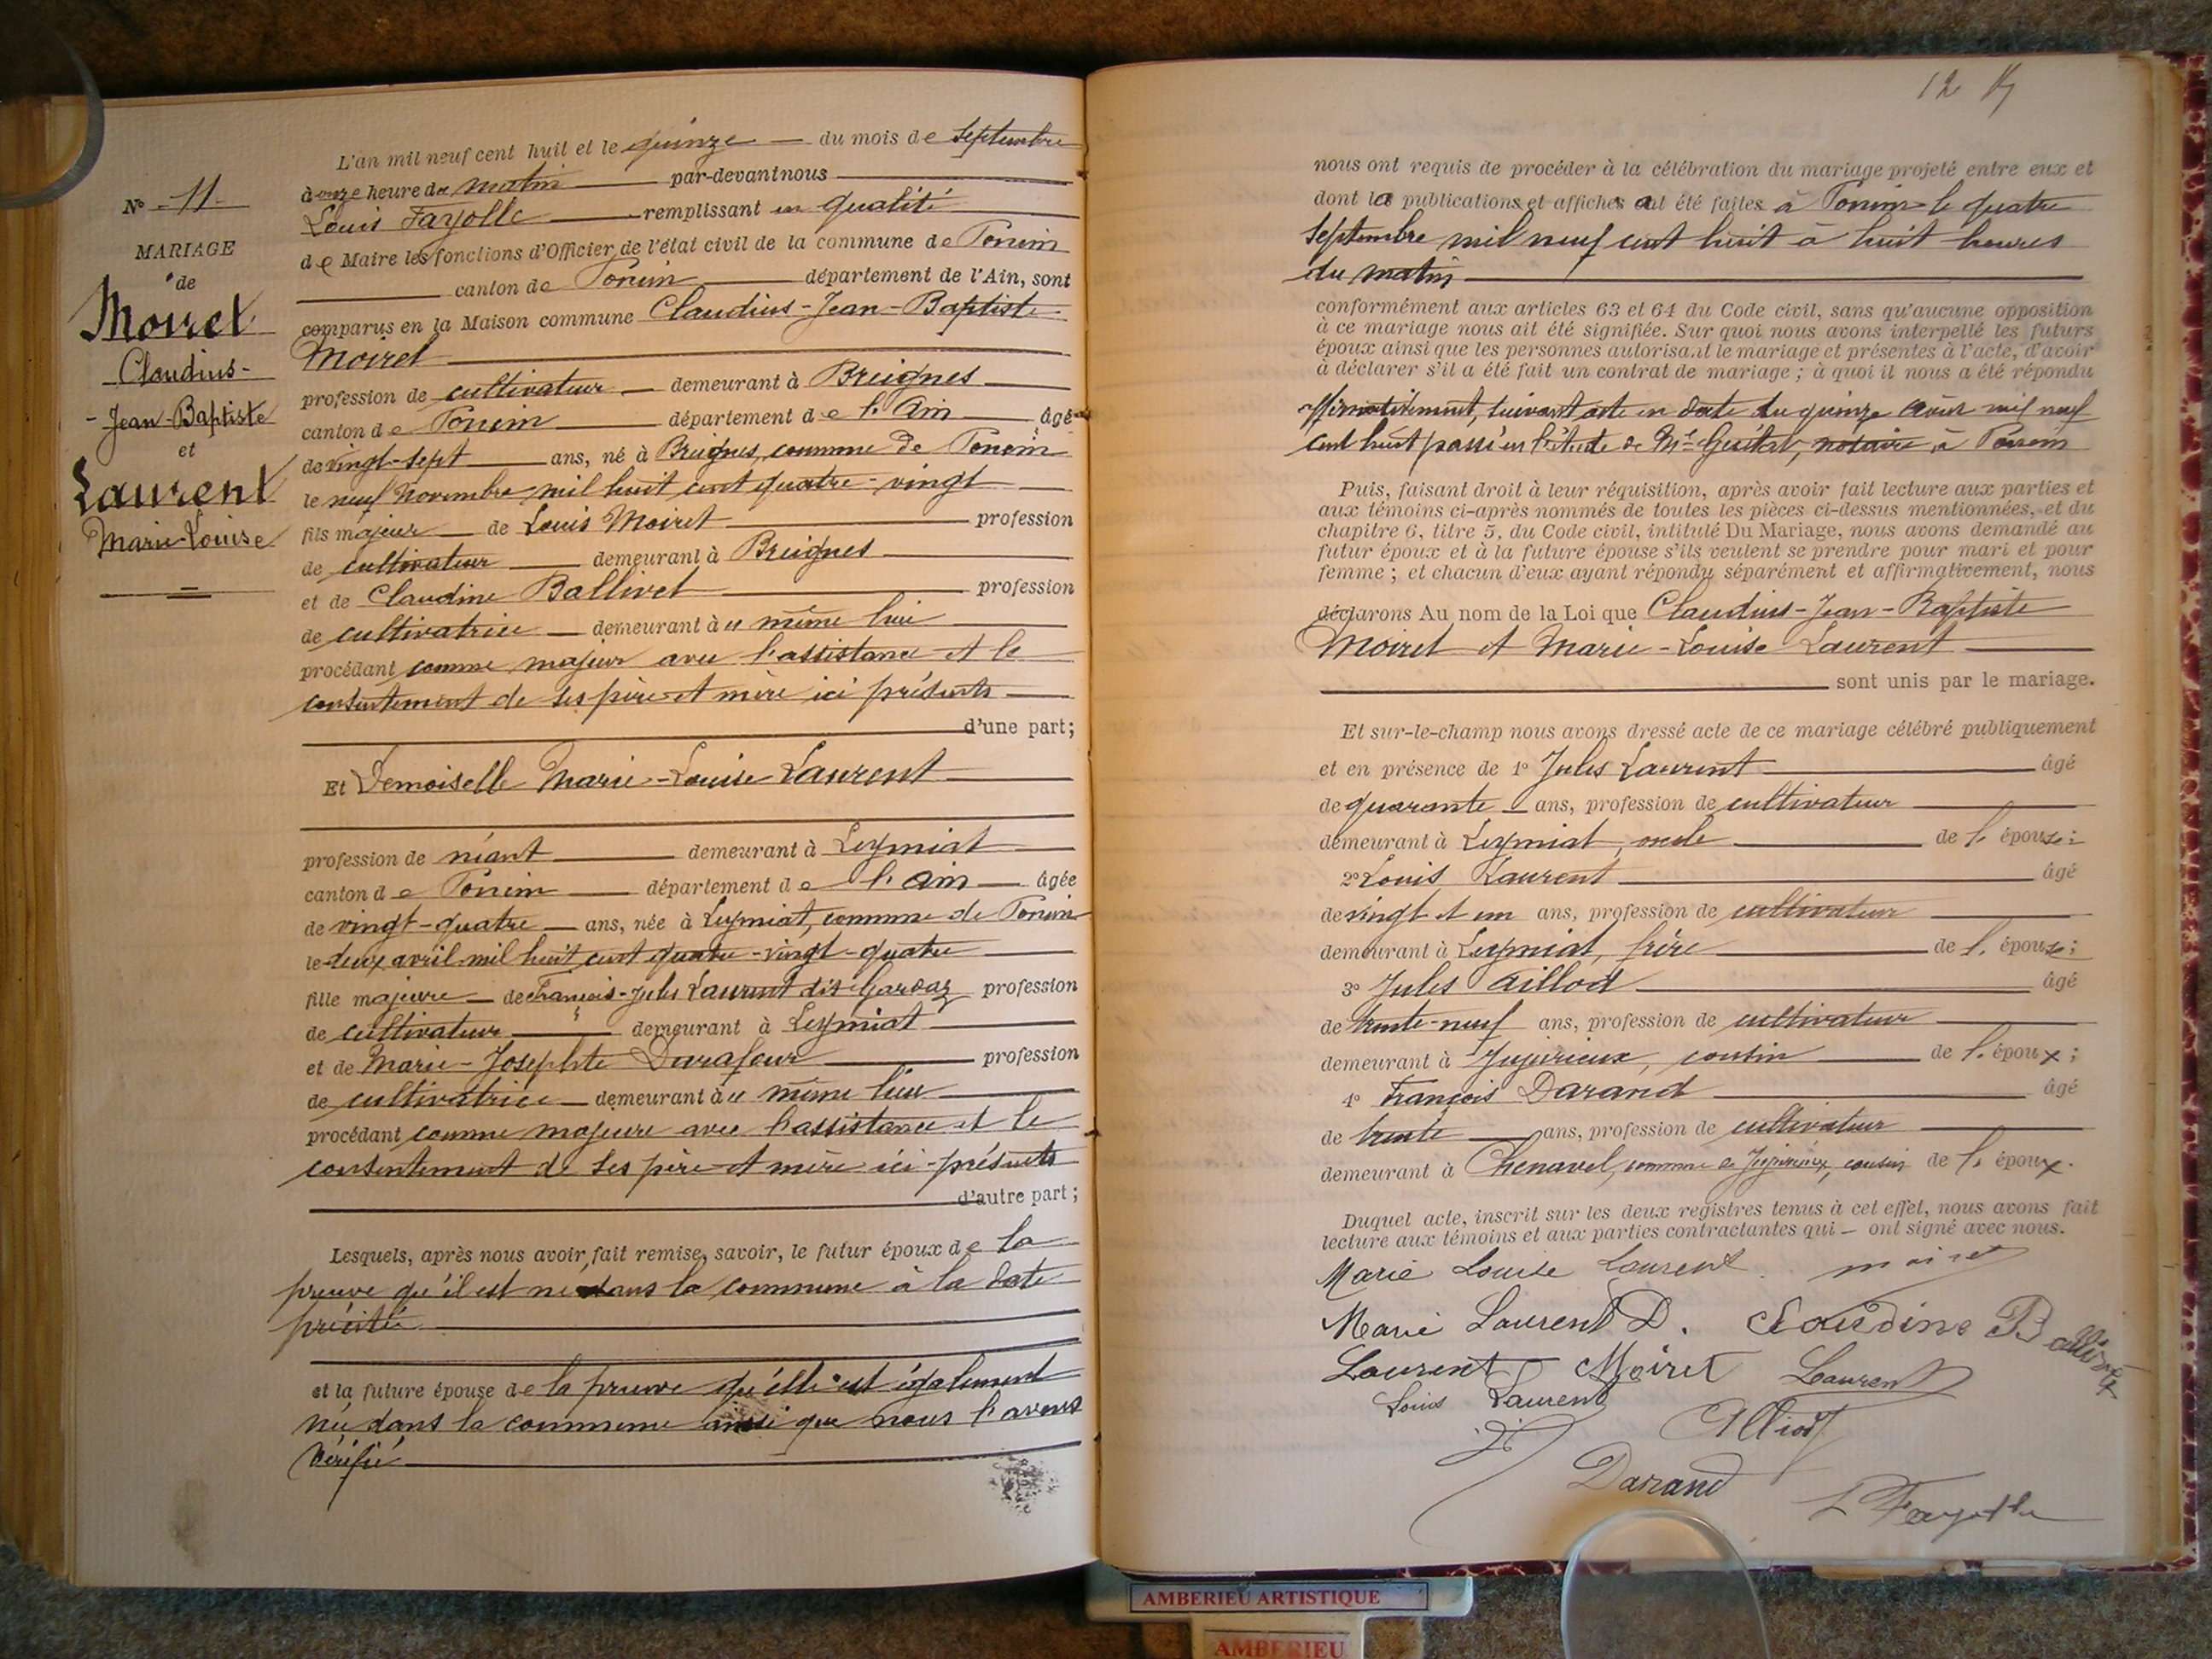 N° 11
MARIAGE
de
Moiret
Claudius-
-Jean-Baptiste
et
Laurent
Marie-Louise
L'an mil neuf cent huit et le quinze du mois de Septembre
à onze heure du matin par-devant nous
Louis Fayolle remplissant en qualité
de Maire les fonctions d'Officier de l'état civil de la commune de Poncin
canton de Poncin département de l'Ain, sont
comparus en la Maison commune Claudius-Jean-Baptiste
Moiret
profession de cultivateur demeurant à Breignes
canton de Poncin département de l'Ain âgé
de vingt-sept ans, né à Breignes, commune de Poncin
le neuf Novembre mil huit cent quatre-vingt
fils majeur de Louis Moiret profession
de cultivateur demeurant à Breignes
et de Claudine Ballivet profession
de cultivatrice demeurant au même lieu
procédant comme majeur avec l'assistance et le
consentement de ses père et mère ici présents
d'une part;
Et Demoiselle Marie-Louise Laurent
profession de néant demeurant à Leymiat
canton de Poncin département de l'Ain âgée
de vingt-quatre ans, née à Leymiat, commune de Poncin
le deux avril mil huit cent quatre-vingt-quatre
fille majeure de François-Jules Laurent dit Gardaz profession
de cultivateur demeurant à Leymiat
et de Marie-Josephte Durafour profession
de cultivatrice demeurant au même lieu
procédant comme majeure avec l'assistance et le
consentement de ses père et mère ici présents
d'autre part;
Lesquels, après nous avoir fait remise, savoir, le futur époux de la
preuve qu'il est né dans la commune à la date
précitée
et la future épouse de la preuve qu'elle est également
née dans la commune ainsi que nous l'avons
vérifié
12
nous ont requis de procéder à la célébration du mariage projeté entre eux et
dont la publications et affiches ont été faites à Poncin le quatre
Septembre mil neuf cent huit à huit heures
du matin
conformément aux articles 63 et 64 du Code civil, sans qu'aucune opposition
à ce mariage nous ait été signifiée. Sur quoi nous avons interpellé les futurs
époux ainsi que les personnes autorisant le mariage et présentes à l'acte, d'avoir
à déclarer s'il a été fait un contrat de mariage; à quoi il nous a été répondu
affirmativement, suivant acte en date du quinze août mil neuf
cent huit passé en l'étude de Me notaire à Poncin
Puis, faisant droit à leur réquisition, après avoir fait lecture aux parties et
aux témoins ci-après nommés de toutes les pièces ci-dessus mentionnées, et du
chapitre 6, titre 5, du Code civil, intitulé Du Mariage, nous avons demandé au
futur époux et à la future épouse s'ils veulent se prendre pour mari et pour
femme; et chacun d'eux ayant répondu séparément et affirmativement, nous
déclarons Au nom de la Loi que Claudius-Jean-Baptiste
Moiret et Marie-Louise Laurent
sont unis par le mariage.
Et sur-le-champ nous avons dressé acte de ce mariage célébré publiquement
et en présence de 1° Jules Laurent âgé
de quarante ans, profession de cultivateur
demeurant à Leymiat, oncle de l'épouse;
2° Louis Laurent âgé
de vingt et un ans, profession de cultivateur
demeurant à Leymiat, frère de l'épouse;
3° Jules Aillod âgé
de trente-neuf ans, profession de cultivateur
demeurant à Jujurieux, cousin de l'époux;
4° François Darand âgé
de trente ans, profession de cultivateur
demeurant à Chenavel, commune de Jujurieux, cousin de l'époux.
Duquel acte, inscrit sur les deux registres tenus à cet effet, nous avons fait
lecture aux témoins et aux parties contractantes qui ont signé avec nous.
Marie Louise Laurent moiret
Marie Laurent D. Claudine Ballivet
Laurent Moiret Laurent
Louis Laurent
Darand
L Fayolle
AMBERIEU ARTISTIQUE
AMBERIEU